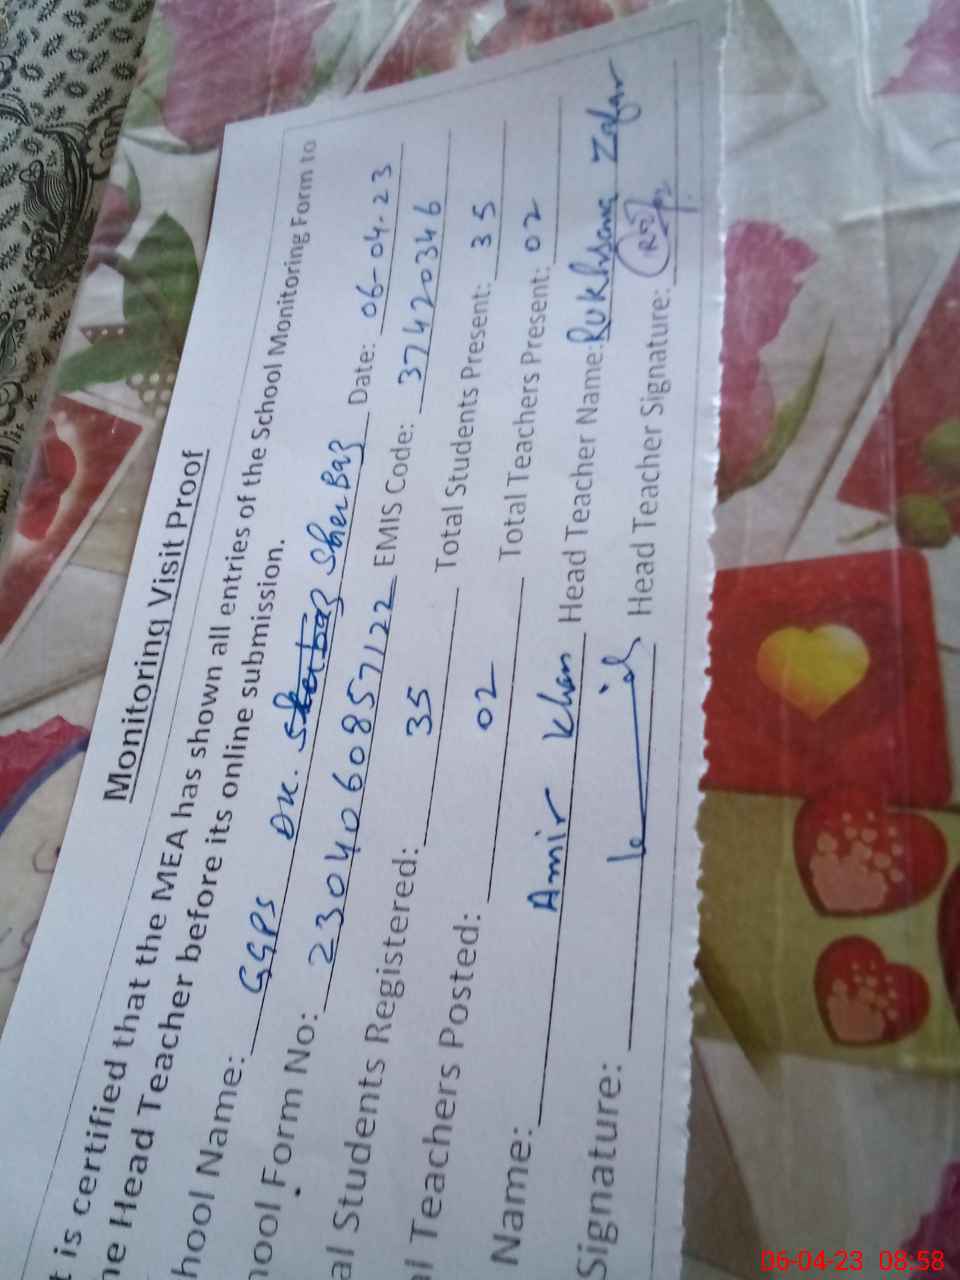 Monitoring Visit Proof
t is certified that the MEA has shown all entries of the School Monitoring Form to
he Head Teacher before its online submission.
hool Name: GGPS DK. Sherbaz Sher Baz Date: 06-04-23
hool Form No: 2304060857122 EMIS Code: 37420346
al Students Registered: 35 Total Students Present: 35
al Teachers Posted: 02 Total Teachers Present: 02
Name: Amir Khan Head Teacher Name: Rukhsana Zafar
Signature: Head Teacher Signature:
06-04-23 08:58